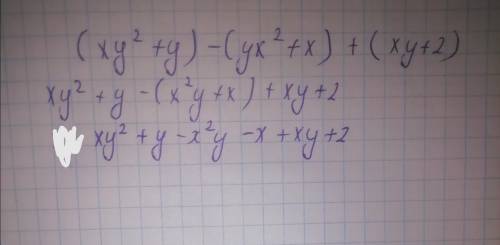 (xy² + y) - (yx² + x) + (xy + 2)
xy² + y - (x²y + x) + xy + 2
xy² + y - x²y - x + xy + 2